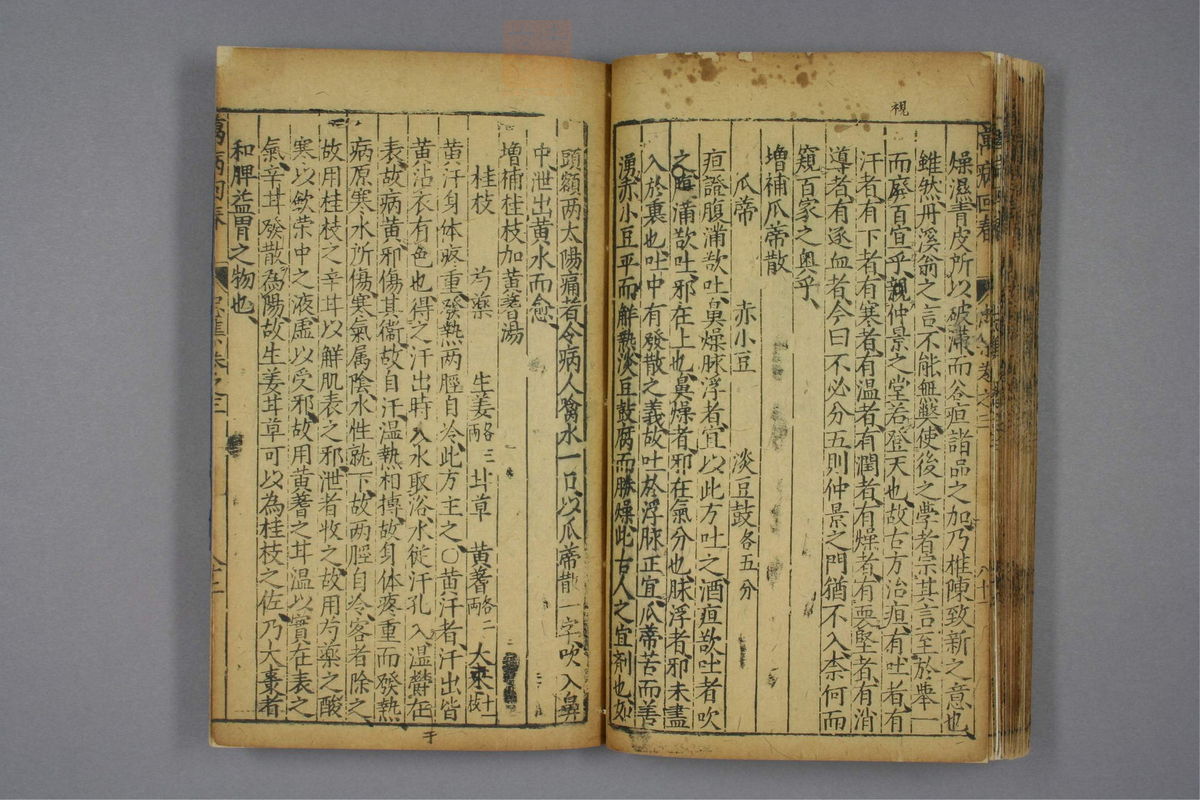 視
燥濕青皮所以破滿而谷疸諸品之加乃推陳致新之意也
雖然丹溪翁之言不能無弊使後之學者宗其言至於舉一
而廢百宜乎親仲景之堂若登天也故古方治疸有吐者有
汗者有下者有寒者有温者有潤者有燥者有耎堅者有消
導者有逐血者今曰不必分五則仲景之門猶不入柰何而
窺百家之奧乎
增補瓜蒂散
瓜蒂 赤小豆 淡豆鼓各五分
疸證腹滿欲吐鼻燥脉浮者宜以此方吐之酒疸欲吐者吹
之○腹滿欲吐邪在上也鼻燥者邪在氣分也脉浮者邪未盡
入於裏也吐中有發散之義故吐於浮脉正宜瓜蒂苦而善
湧赤小豆平而解熱淡豆鼓腐而勝燥此古人之宜劑也如
萬病回春
頭額两太陽痛者令病人噙水一口以瓜蒂散一字吹入鼻
中泄出黃水而愈
增補桂枝加黃蓍湯
桂枝 芍藥 生姜各三兩 甘草 黃蓍各二兩 大棗十二枚
黃汗身体疼重發熱两脛自冷此方主之○黃汗者汗出皆
黃沾衣有色也得之汗出時入水取浴水從汗孔入温鬱在
表故病黃邪傷其衞故自汗温熱相摶故身体疼重而發熱
病原寒水所傷寒氣属陰水性就下故两脛自冷客者除之
故用桂枝之辛甘以解肌表之邪泄者收之故用芍藥之酸
寒以斂荣中之液虛以受邪故用黃蓍之甘温以實在表之
氣辛甘發散為陽故生姜甘草可以為桂枝之佐乃大棗者
和脾益胃之物也
萬病回春